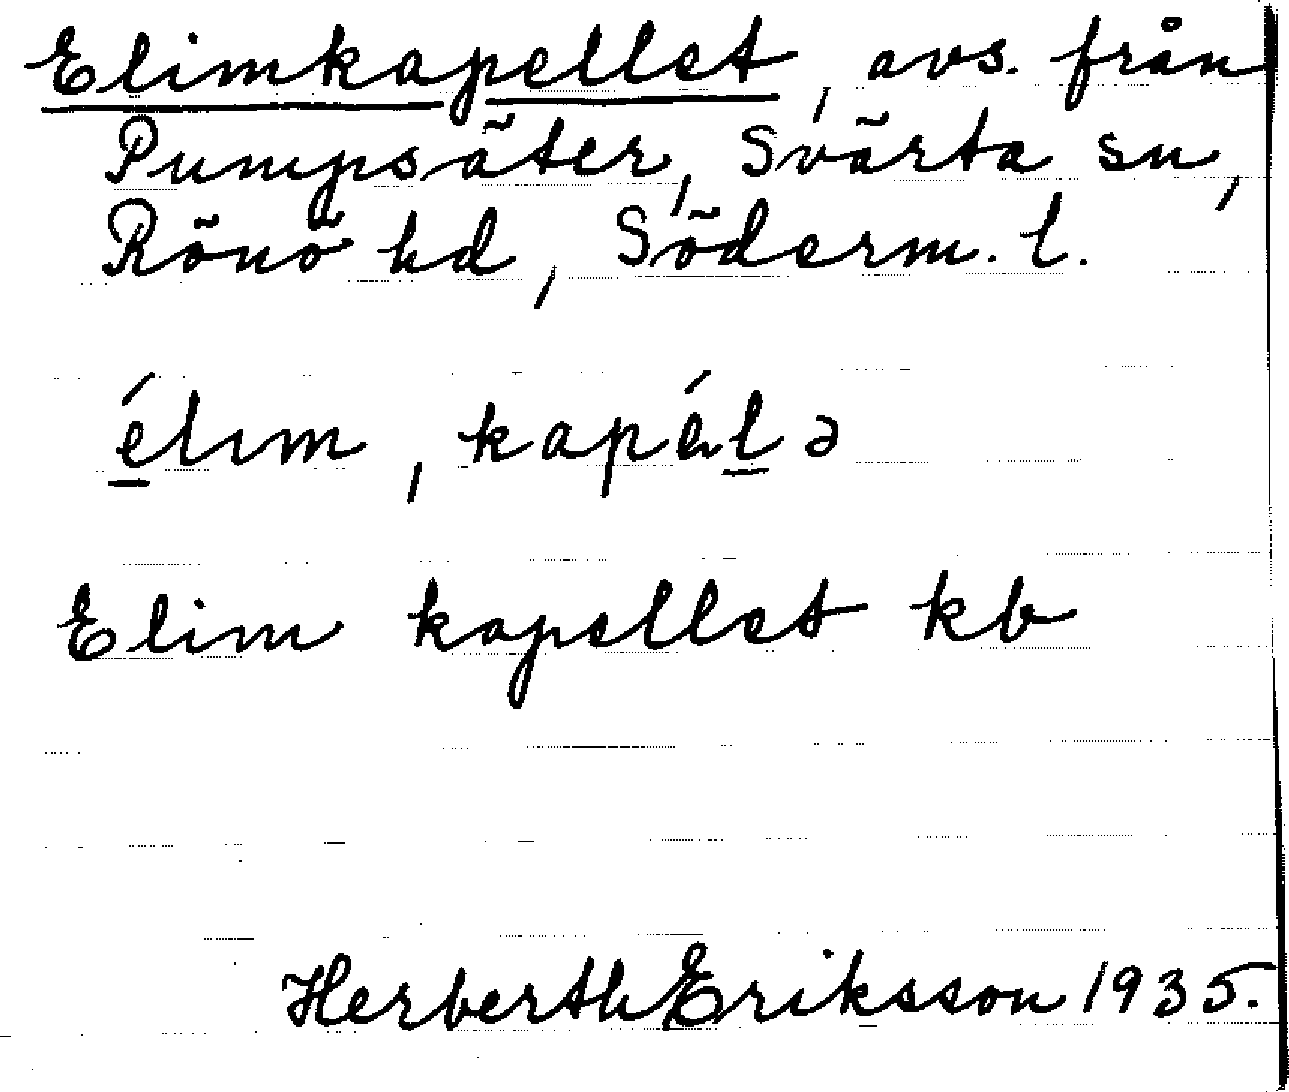 Elimkapellet, avs. från
Pumpsäter, Svärta sn,
Rönö hd, Söderm. l.
élım, kapé̇lə
Elim kapellet kb
Herberth Eriksson 1935.